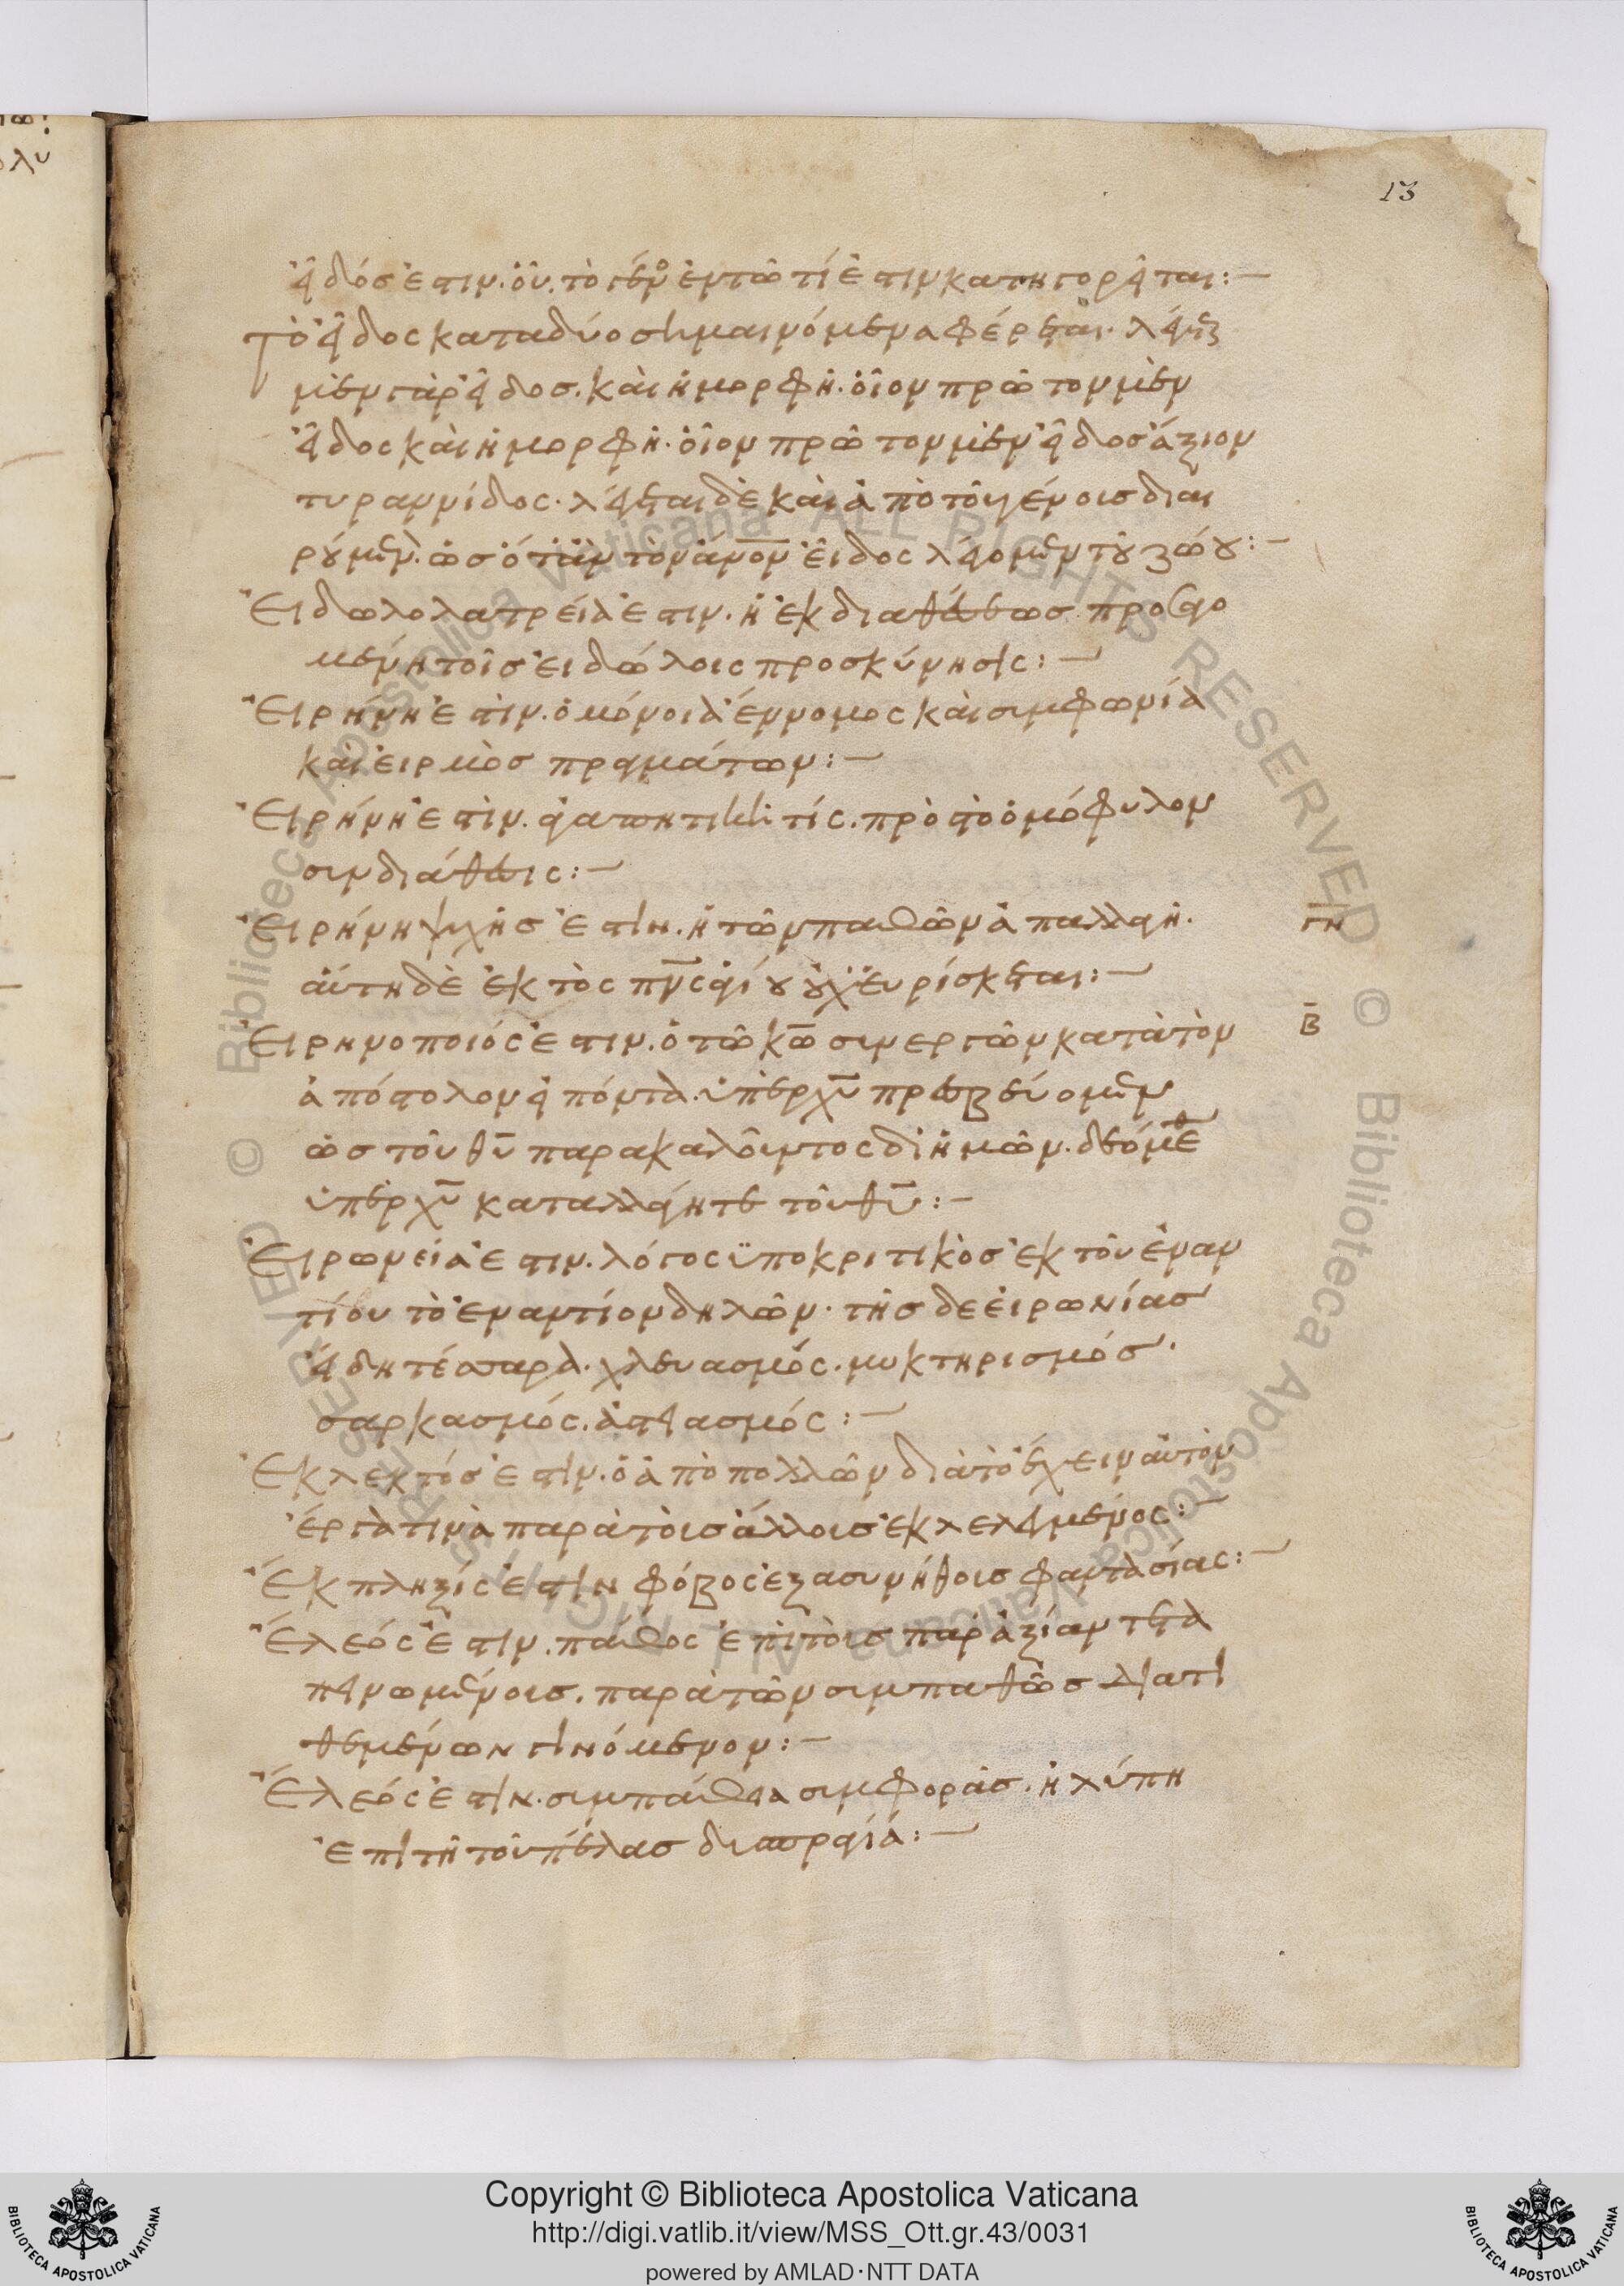 13
εἶδός ἐστιν. οὗ. τὸ γένος ἐν τῶ τί ἐστιν κατηγορεῖται:—
Τὸ εἶδος κατα δύο σημαινόμενα φέρεται. λέγεται
μὲν γὰρ εἶδος. καὶ ἡ μορφή. οἷον πρῶτον μὲν
εἶδος καὶ ἡ μορφή. οἷον πρῶτον μὲν εἶδος ἄξιον
τυραννίδος. λέγεται δὲ καὶ ἀπὸ τοῦ γένοις διαι
ρούμενον. ὡς ὅταν τὸν ἄνον εἶδος λέγομεν τοῦ ζώου:—
Εἰδωλολατρεία ἐστιν. ἡ ἐκ διαθέσεως προσαγο
μένη τοῖς εἰδώλοις προσκύνησις:—
Εἰρήνη ἐστιν. ὁμόνοια ἔννομος καὶ συμφωνία
καὶ εἱρμὸς πραγμάτων:—
Εἰρήνη ἐστὶν. ἀγαπητική τίς. πρὸς τὸ ὁμόφυλον
συνδιάθεσις:—
Εἰρήνη ψυχῆς ἐστὶν. ἡ τῶν παθῶν ἀπαλλαγή.
αὕτη δὲ ἐκτὸς πνς ἁγίου οὐχ εὑρίσκεται:—
ΓΝ
Εἰρηνοποιός ἐστιν. ὁ τῶ κω συνεργῶν κατὰ τὸν
Β
ἀπόστολον εἰπόντα. ὑπὲρ χυ πρεσβεύομεν
ὡς τοῦ θυ παρακαλοῦντος δι ἡμῶν. δεόμεθ
ὑπὲρ χυ καταλλάγητε τοῦ θυ:—
Εἰρωνεία ἐστιν. λόγος ὑποκριτικὸς ἐκ τοῦ ἐναν
τίου τὸ ἐναντίον δηλῶν. τῆς δε εἰρωνίας
εἴδη τέσσαρα. χλευασμός. μυκτηρισμός.
σαρκασμός. ἀστεϊασμός:—
Ἐκλεκτός ἐστιν. ὁ ἀπὸ πολλῶν διὰ τὸ ἔχειν αὐτὸν
ἔργα τινὰ παρὰ τοῖς ἄλλοις ἐκλελεγμένος:—
Ἔκπληξίς ἐστιν φόβος ἐξ ασυνήθοις φαντασίας:—
Ἔλεός ἐστιν. πάθος ἐπὶ τοῖς παρ ἀξίαν τετα
πεινωμένοις. παρὰ τῶν συμπαθῶς διατι
θεμένων γινόμενον:—
Ἔλεός ἐστιν. συμπάθεια συμφορᾶς. ἢ λύπη
ἐπὶ τῆ τοῦ πέλας δυσπραγία:—
Copyright © Biblioteca Apostolica Vaticana
http://digi.vatlib.it/view/MSS_Ott.gr.43/0031
powered by AMLAD·NTT DATA